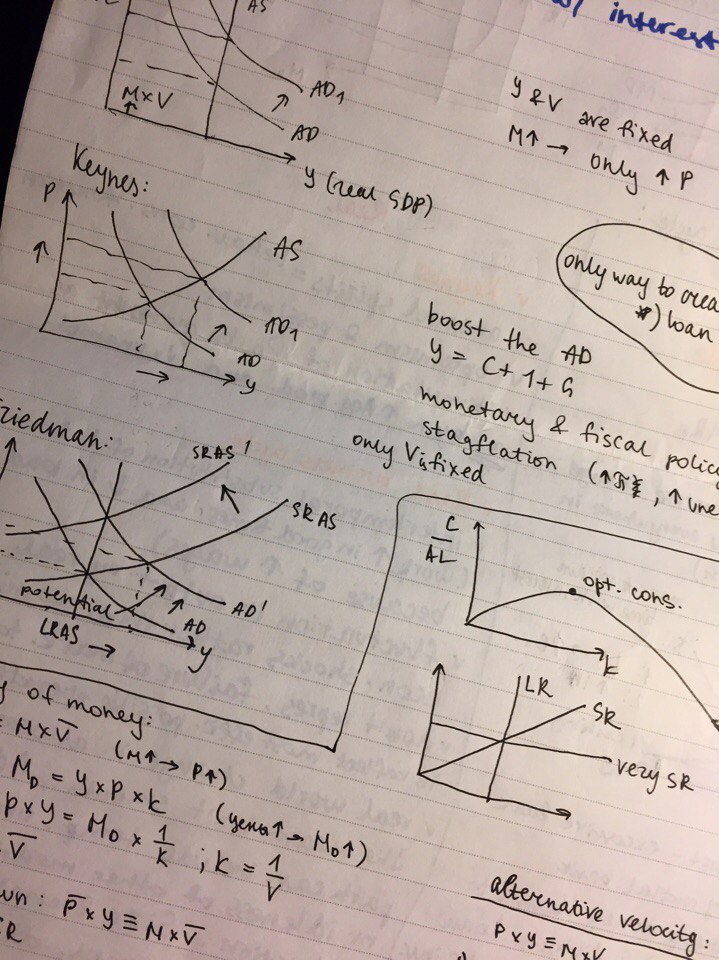 w/ interest
AS
AD1
AD
M×V
↑
y (real GDP)
y & V are fixed
M↑ → only ↑ P
Keynes:
P
↑
AS
AD1
AD
→ y
only way to crea
*) loan
boost the AD
y = C + I + G
monetary & fiscal policy
stagflation (↑π, ↑ une
only V is fixed
Friedman:
SRAS'
SRAS
AD'
AD
potential
LRAS →
y
C
AL
opt. cons.
k
LR
SR
very SR
y of money:
≡ M×V̅
(M↑→ P↑)
MD = y×p×k
(цены↑→ MD↑)
p×y = MD × 1/k ; k = 1/V
V̅
wn: P̅×y ≡ M×V̅
ER
alternative velocity:
P×y ≡ M×V